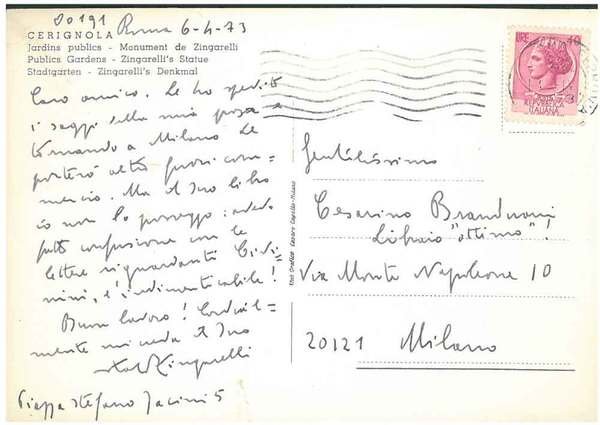 00191 Roma 6-4-73
CERIGNOLA
Jardins publics - Monument de Zingarelli
Publics Gardens - Zingarelli's Statue
Stadtgarten - Zingarelli's Denkmal
Caro amico, Le ho spedito
i saggi della mia prosa e
tornando a Milano Le
porterò altro fuori com=
mercio. Ma il Suo libro
io non lo posseggo:
fatto confusione con le
lettere riguardanti
mini, l'indimenticabile!
Buon lavoro! Cordial=
mente mi creda il Suo
Italo Zingarelli
Piazza Stefano Jacini 5
LIRE 40
REPUBBLICA
ITALIANA
Gentilissimo
Cesarino Branduani
Libraio "ottimo"!
Via Monte Napoleone 10
20121 Milano